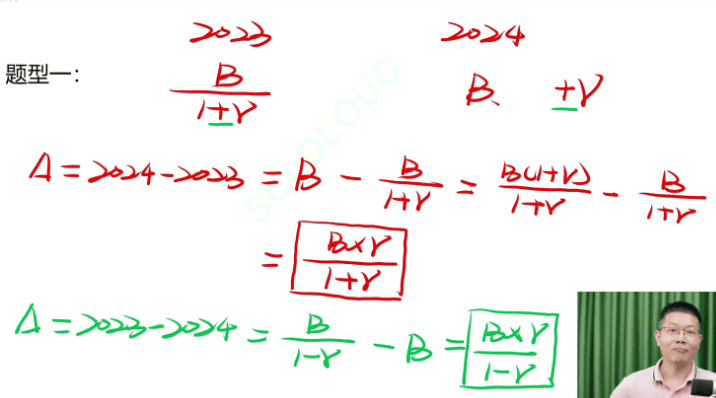 2023 2024
题型一：
B/(1+r) B、 +r
Δ=2024-2023 = B - B/(1+r) = B(1+r)/(1+r) - B/(1+r)
= B×r/(1+r)
Δ=2023-2024 = B/(1-r) - B = B×r/(1-r)